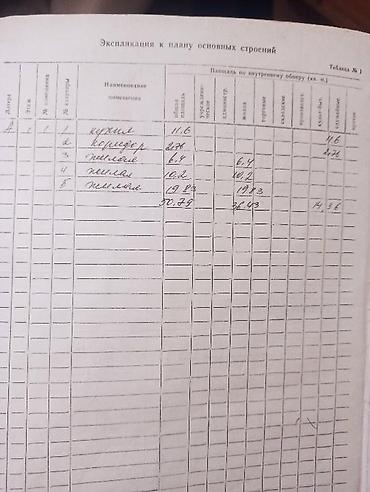 Экспликация к плану основных строений
Таблица № 1
Литера
Этаж
№ помещения
№ квартиры
Наименование помещения
Площадь по внутреннему обмеру (кв. м.)
общая площадь
учрежденческое
администр.
жилая
торговые
складские
производст.
культ-быт.
служебные
прочие
А 1 1 1 кухня 11.6 11.6
2 коридор 2.76 2.76
3 жилая 6.4 6.4
4 жилая 10.2 10.2
5 жилая 19.83 19.83
50.79 36.43 14.36